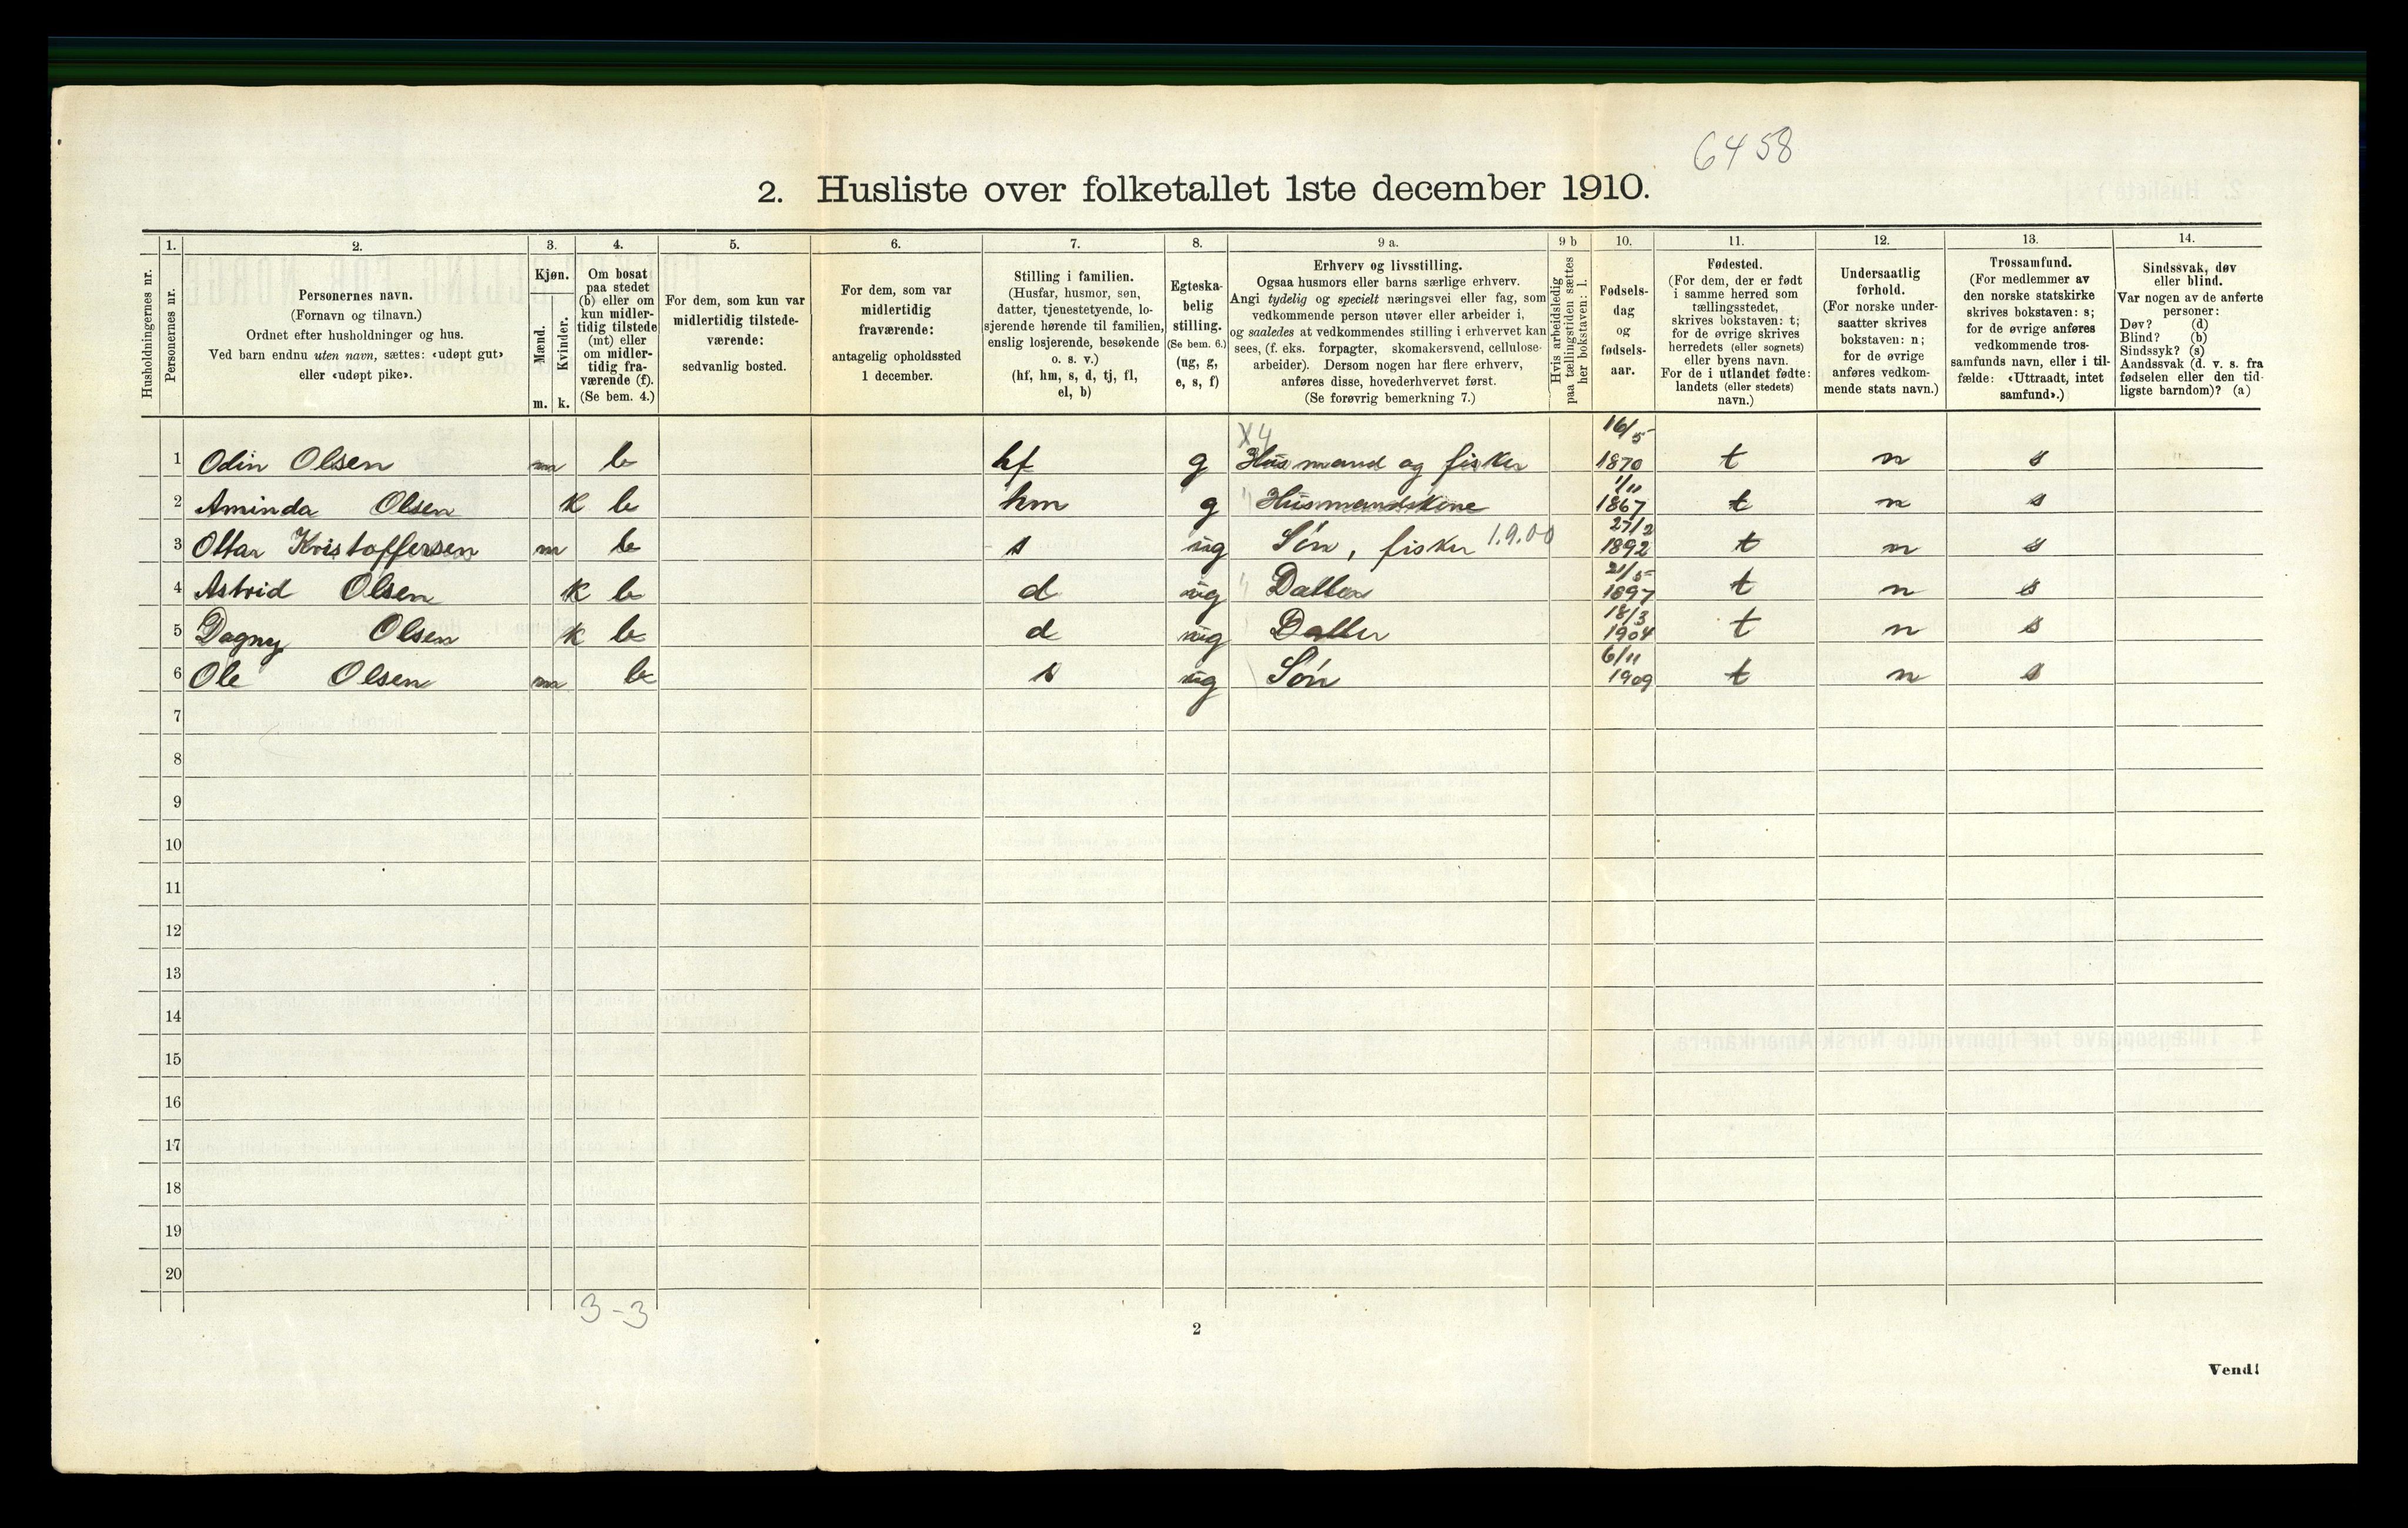 6458
2. Husliste over folketallet 1ste december 1910.
Husholdningernes nr.
1.
Personernes nr.
2.
Personernes navn.
(Fornavn og tilnavn.)
Ordnet efter husholdninger og hus.
Ved barn endnu uten navn, sættes: «udøpt gut»
eller «udøpt pike».
3.
Kjøn.
Mænd.
Kvinder.
m. k.
4.
Om bosat
paa stedet
(b) eller om
kun midler-
tidig tilstede
(mt) eller
om midler-
tidig fra-
værende (f).
(Se bem. 4.)
5.
For dem, som kun var
midlertidig tilstede-
værende:
sedvanlig bosted.
6.
For dem, som var
midlertidig
fraværende:
antagelig opholdssted
1 december.
7.
Stilling i familien.
(Husfar, husmor, søn,
datter, tjenestetyende, lo-
sjerende hørende til familien,
enslig losjerende, besøkende
o. s. v.)
(hf, hm, s, d, tj, fl,
el, b)
8.
Egteska-
belig
stilling.
(Se bem. 6.)
(ug, g,
e, s, f)
9 a.
Erhverv og livsstilling.
Ogsaa husmors eller barns særlige erhverv.
Angi tydelig og specielt næringsvei eller fag, som
vedkommende person utøver eller arbeider i,
og saaledes at vedkommendes stilling i erhvervet kan
sees, (f. eks. forpagter, skomakersvend, cellulose-
arbeider). Dersom nogen har flere erhverv,
anføres disse, hovederhvervet først.
(Se forøvrig bemerkning 7.)
9 b
Hvis arbeidsledig
paa tællingstiden sættes
her bokstaven: l.
10.
Fødsels-
dag
og
fødsels-
aar.
11.
Fødested.
(For dem, der er født
i samme herred som
tællingsstedet,
skrives bokstaven: t;
for de øvrige skrives
herredets (eller sognets)
eller byens navn.
For de i utlandet fødte:
landets (eller stedets)
navn.)
12.
Undersaatlig
forhold.
(For norske under-
saatter skrives
bokstaven: n;
for de øvrige
anføres vedkom-
mende stats navn.)
13.
Trossamfund.
(For medlemmer av
den norske statskirke
skrives bokstaven: s;
for de øvrige anføres
vedkommende tros-
samfunds navn, eller i til-
fælde: «Uttraadt, intet
samfund».)
14.
Sindssvak, døv
eller blind.
Var nogen av de anførte
personer:
Døv? (d)
Blind? (b)
Sindssyk? (s)
Aandssvak (d. v. s. fra
fødselen eller den tid-
ligste barndom)? (a)
X4 16/5
1 Odin Olsen m b hf g Husmand og fisker 1870 t n s
1/11
2 Aminda Olsen k b hm g Husmandskone 1867 t n s
27/2
3 Ottar Kristoffersen m b s ug Søn, fisker 1.9.00 1892 t n s
21/5
4 Astrid Olsen k b d ug Datter 1897 t n s
18/3
5 Dagny Olsen k b d ug Datter 1904 t n s
6/11
6 Ole Olsen m b s ug Søn 1909 t n s
7
8
9
10
11
12
13
14
15
16
17
18
19
20
3-3
2
Vend!